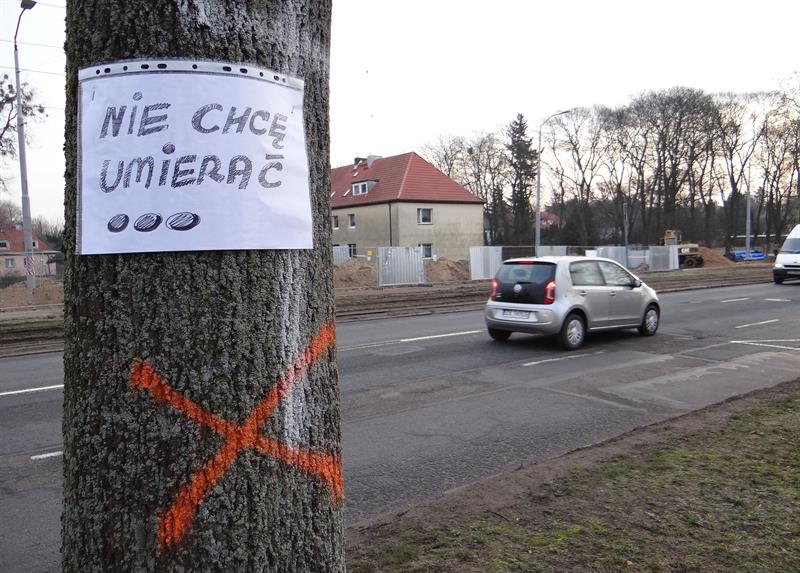 NIE CHCĘ
UMIERAĆ
...